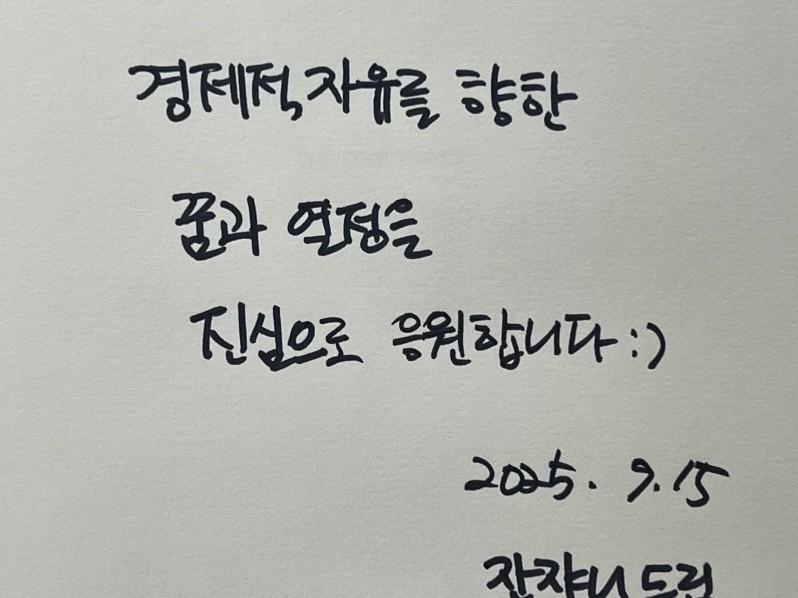 경제적 자유를 향한
꿈과 열정을
진심으로 응원합니다 :)
2025. 9. 15
드림